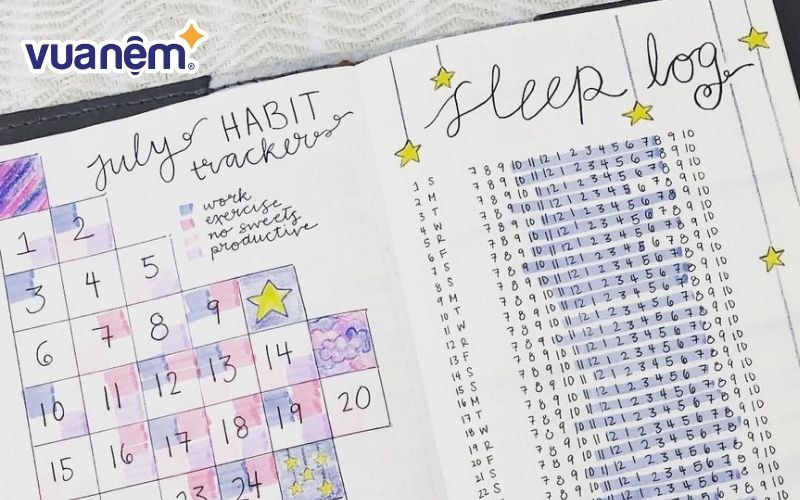 vuanệm®
july HABIT
tracker
work
exercise
no sweets
productive
1 2
3 4 5
6 7 8 9
10 11 12 13 14
15 16 17 18 19 20
23 24
sleep log
1 S 7 8 9 10 11 12 1 2 3 4 5 6 7 8 9 10
2 M 7 8 9 10 11 12 1 2 3 4 5 6 7 8 9 10
3 T 7 8 9 10 11 12 1 2 3 4 5 6 7 8 9 10
4 W 7 8 9 10 11 12 1 2 3 4 5 6 7 8 9 10
5 R 7 8 9 10 11 12 1 2 3 4 5 6 7 8 9 10
6 F 7 8 9 10 11 12 1 2 3 4 5 6 7 8 9 10
7 S 7 8 9 10 11 12 1 2 3 4 5 6 7 8 9 10
8 S 7 8 9 10 11 12 1 2 3 4 5 6 7 8 9 10
9 M 7 8 9 10 11 12 1 2 3 4 5 6 7 8 9 10
10 T 7 8 9 10 11 12 1 2 3 4 5 6 7 8 9 10
11 W 7 8 9 10 11 12 1 2 3 4 5 6 7 8 9 10
12 R 7 8 9 10 11 12 1 2 3 4 5 6 7 8 9 10
13 F 7 8 9 10 11 12 1 2 3 4 5 6 7 8 9 10
14 S 7 8 9 10 11 12 1 2 3 4 5 6 7 8 9 10
15 S 7 8 9 10 11 12 1 2 3 4 5 6 7 8 9 10
16 M 7 8 9 10 11 12 1 2 3 4 5 6 7 8 9 10
17 T 7 8 9 10 11 12 1 2 3 4 5 6 7 8 9 10
18 W 7 8 9 10 11 12 1 2 3 4 5 6 7 8 9 10
19 R 7 8 9 10 11 12 1 2 3 4 5 6 7 8 9 10
20 F 7 8 9 10 11 12 1 2 3 4 5 6 7 8 9 10
21 S 7 8 9 10 11 12 1 2 3 4 5 6 7 8 9 10
22 S 7 8 9 10 11 12 1 2 3 4 5 6 7 8 9 10